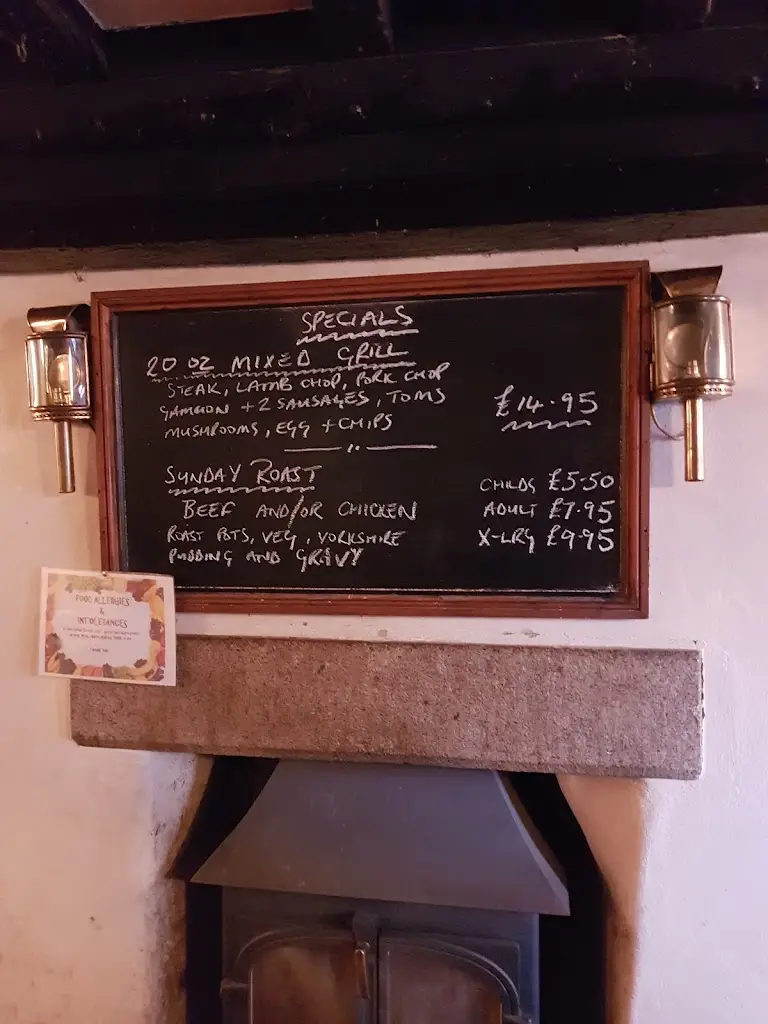 SPECIALS
20 OZ MIXED GRILL
STEAK, LAMB CHOP, PORK CHOP
GAMMON + 2 SAUSAGES, TOMS
MUSHROOMS, EGG + CHIPS
£14.95
SUNDAY ROAST
BEEF AND/OR CHICKEN
ROAST POTS, VEG, YORKSHIRE
PUDDING AND GRAVY
CHILDS £5.50
ADULT £7.95
X-LRG £9.95
FOOD ALLERGIES
&
INTOLERANCES